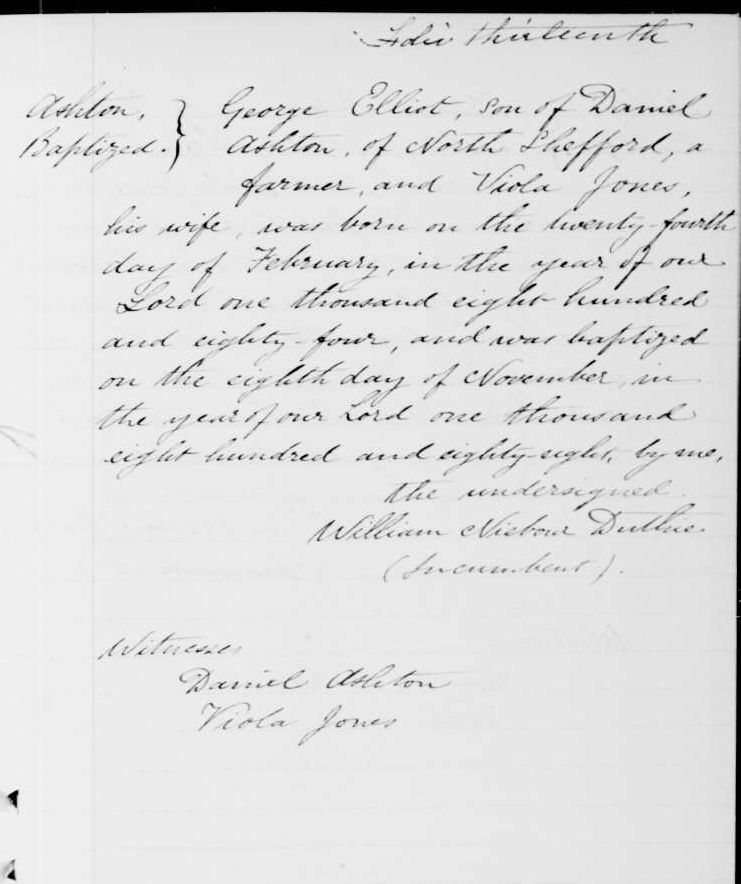 Folio thirteenth
Ashton, } George Elliot, son of Daniel
Baptized. } Ashton, of North Shefford, a
farmer, and Viola Jones,
his wife, was born on the twenty-fourth
day of February, in the year of our
Lord one thousand eight hundred
and eighty-four, and was baptized
on the eighth day of November, in
the year of our Lord one thousand
eight hundred and eighty-eight, by me,
the undersigned.
William Duthie
(Incumbent).
Witnesses
Daniel Ashton
Viola Jones